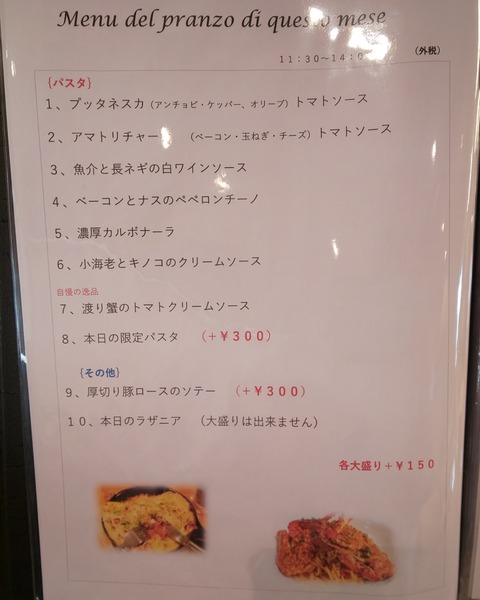 Menu del pranzo di questo mese
11:30~14:0
（外税）
{パスタ}
1、プッタネスカ（アンチョビ・ケッパー、オリーブ）トマトソース
2、アマトリチャー （ベーコン・玉ねぎ・チーズ）トマトソース
3、魚介と長ネギの白ワインソース
4、ベーコンとナスのペペロンチーノ
5、濃厚カルボナーラ
6、小海老とキノコのクリームソース
自慢の逸品
7、渡り蟹のトマトクリームソース
8、本日の限定パスタ （+￥300）
{その他}
9、厚切り豚ロースのソテー （+￥300）
10、本日のラザニア （大盛りは出来ません）
各大盛り+￥150